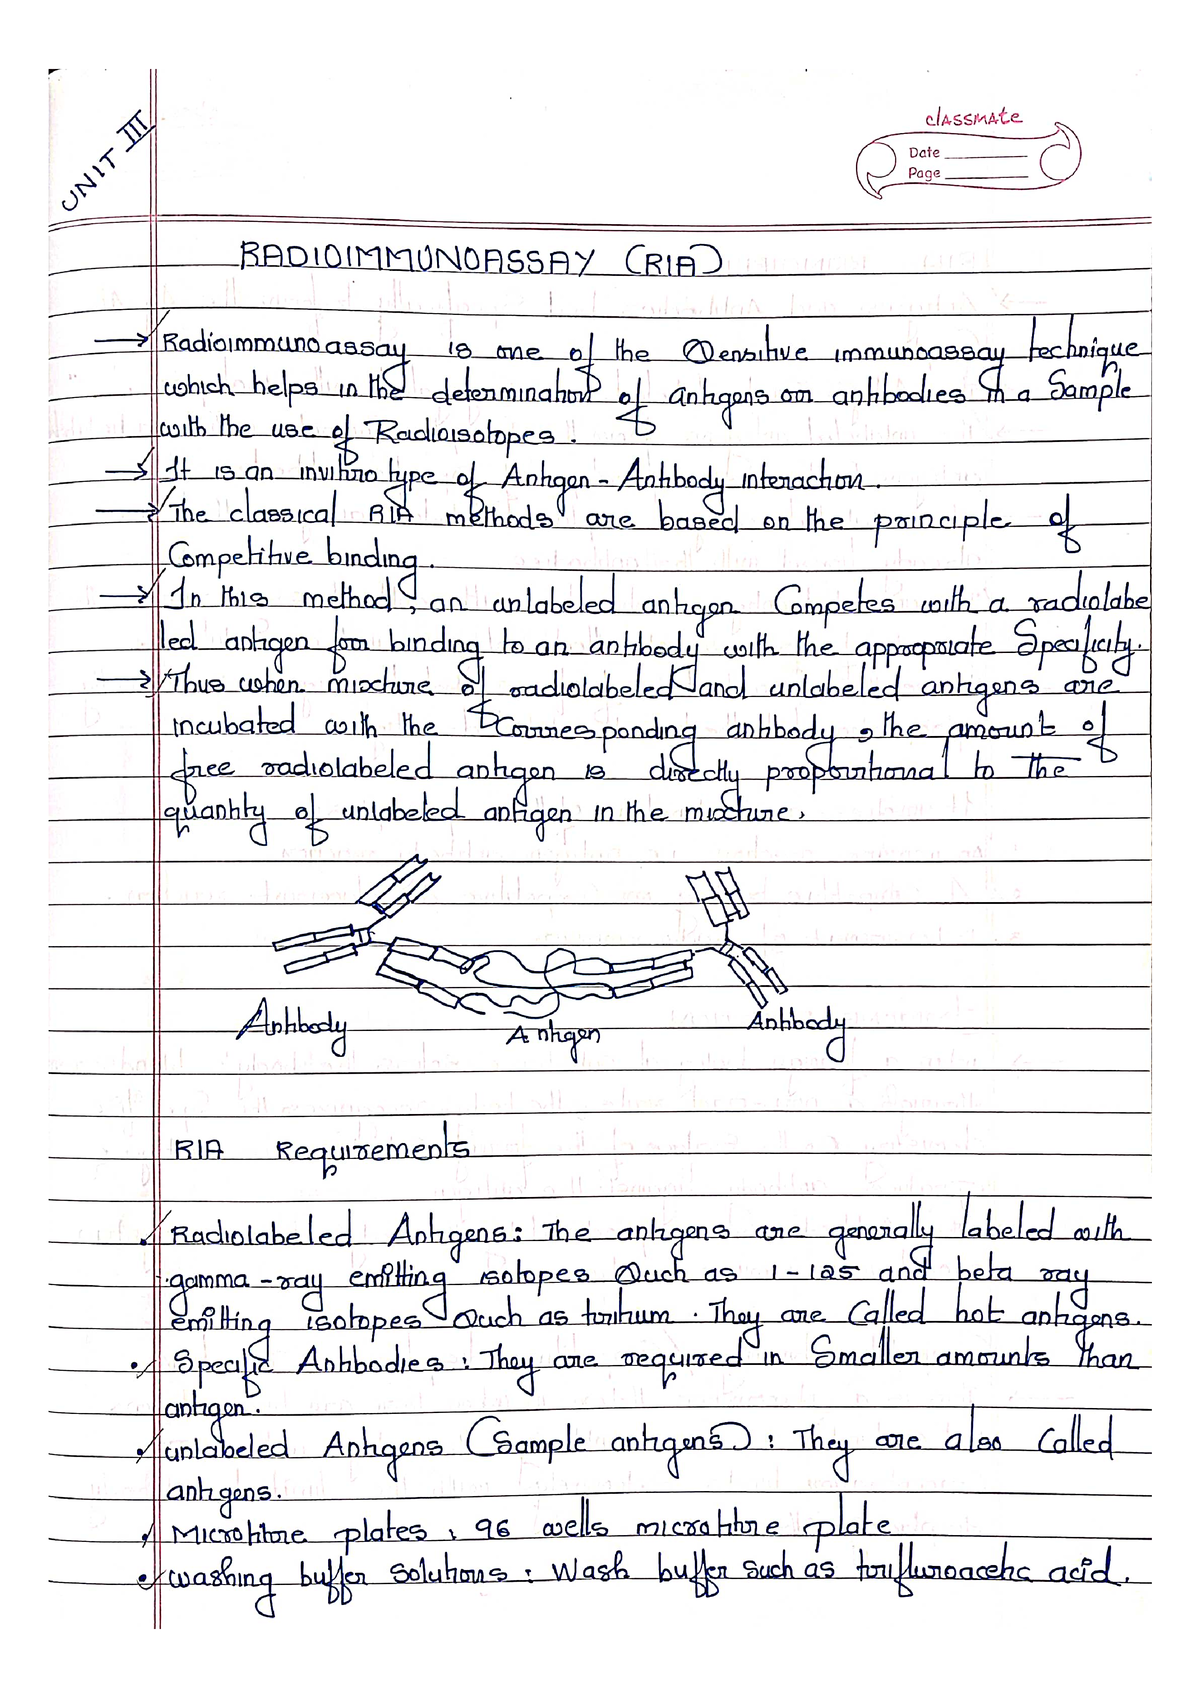 UNIT III
classmate
Date
Page
RADIOIMMUNOASSAY (RIA)
→ Radioimmunoassay is one of the Sensitive immunoassay technique
which helps in the determination of antigens or antibodies in a Sample
with the use of Radioisotopes.
→ It is an invitro type of Antigen - Antibody interaction.
→ The classical RIA methods are based on the principle of
Competitive binding.
→ In this method, an unlabeled antigen Competes with a radiolabe
led antigen for binding to an antibody with the appropriate Specificity.
→ Thus when mixture of radiolabeled and unlabeled antigens are
incubated with the Corresponding antibody, the amount of
free radiolabeled antigen is directly proportional to The
quantity of unlabeled antigen in the mixture.
Antibody Antigen Antibody
RIA Requirements
• Radiolabeled Antigens: The antigens are generally labeled with
gamma-ray emitting isotopes Such as I-125 and beta ray
emitting isotopes Such as tritium. They are Called hot antigens.
• Specific Antibodies: They are required in Smaller amounts Than
antigen.
• unlabeled Antigens (Sample antigens): They are also Called
antigens.
• Microtitre plates: 96 wells microtitre plate
• washing buffer Solutions: Wash buffer such as trifluroacetic acid.